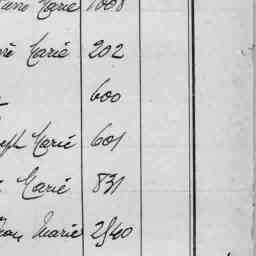 Marie 1008
Marie 202
600
Joseph Marie 601
Marie 831
Jean Marie 2540